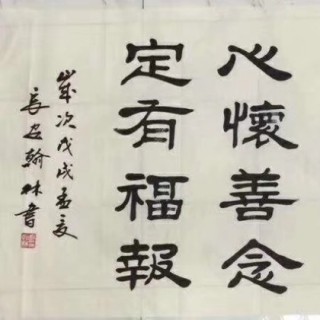 心懷善念
定有福報
歲次戊戌孟夏
長安翰林書